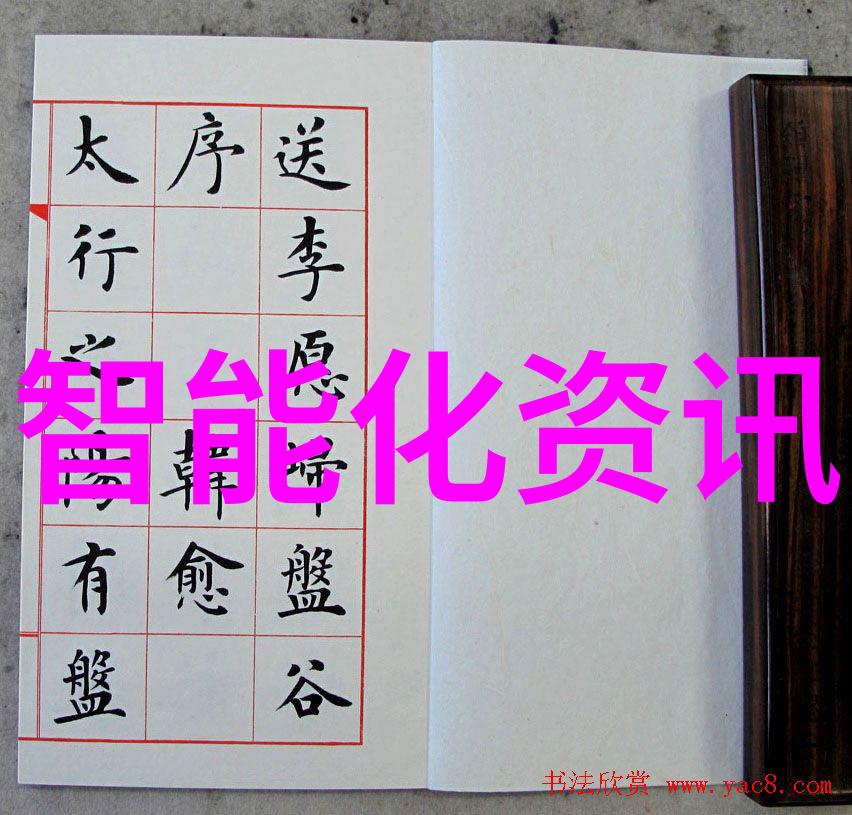 送李愿歸盤谷
序 韓愈
太行之陽有盤
智能化资讯
书法欣赏 www.yac8.com